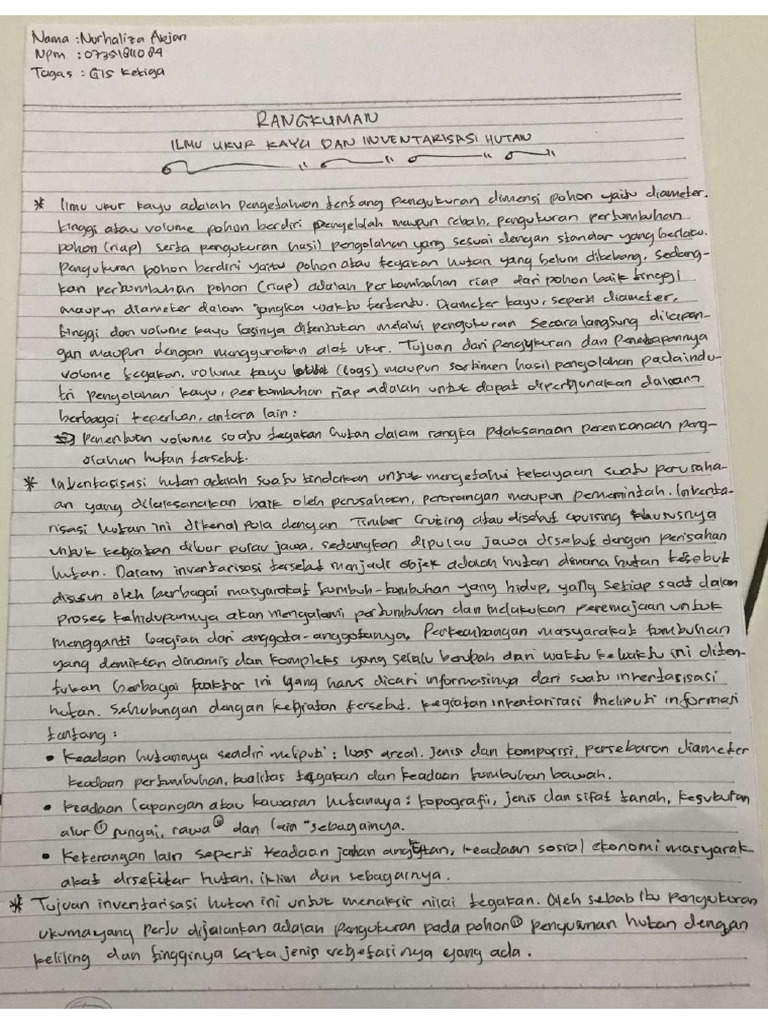 Nama : Nurhaliza Arjan
Npm : 07351811084
Tugas : GIS Ketiga
RANGKUMAN
ILMU UKUR KAYU DAN INVENTARISASI HUTAN
* Ilmu ukur kayu adalah pengetahuan tentang pengukuran dimensi pohon yaitu diameter.
tinggi atau volume pohon berdiri maupun rebah, pengukuran pertumbuhan
pohon (riap) serta pengukuran hasil pengolahan yang sesuai dengan standar yang berlaku.
Pengukuran pohon berdiri yaitu pohon atau tegakan hutan yang belum ditebang, sedang-
kan pertumbuhan pohon (riap) adalah pertambahan riap dari pohon baik tinggi
maupun diameter dalam jangka waktu tertentu. Diameter kayu, seperti diameter,
tinggi dan volume kayu ditentukan melalui pengukuran secara langsung dilapan-
gan maupun dengan menggunakan alat ukur. Tujuan dari pengukuran dan Penetapannya
volume tegakan, volume kayu (logs) maupun sortimen hasil pengolahan pada indu-
tri pengolahan kayu, pertumbuhan riap adalah untuk dapat dipergunakan dalam
berbagai keperluan, antara lain :
=> Penentuan volume suatu tegakan hutan dalam rangka pelaksanaan perencanaan peng-
olahan hutan tersebut.
* Inventasisasi hutan adalah suatu tindakan untuk mengetahui kekayaan suatu perusaha-
an yang dilaksanakan baik oleh perusahaan, perorangan maupun pemerintah. Inventa-
risasi hutan ini dikenal pula dengan Timber Cruising atau disebut cruising khususnya
untuk kegiatan diluar pulau jawa, sedangkan dipulau jawa disebut dengan perisahan
hutan. Dalam inventarisasi tersebut menjadi objek adalah hutan dimana hutan tersebut
disusun oleh berbagai masyarakat tumbuh-tumbuhan yang hidup, yang setiap saat dalam
proses kehidupannya akan mengalami pertumbuhan dan melakukan peremajaan untuk
mengganti bagian dari anggota-anggotanya. Perkembangan masyarakat tumbuhan
yang demikian dinamis dan kompleks yang selalu berubah dari waktu kewaktu ini diten-
tukan berbagai faktor ini yang harus dicari informasinya dari suatu inventarisasi
hutan. Sehubungan dengan kegiatan tersebut. kegiatan inventarisasi meliputi informasi
tentang :
• Keadaan hutannya sendiri meliputi : luas areal, jenis dan komposisi, persebaran diameter
keadaan pertumbuhan, kualitas tegakan dan keadaan tumbuhan bawah.
• Keadaan lapangan atau kawasan hutannya : topografi, jenis dan sifat tanah, kesuburan
alur sungai, rawa dan lain sebagainya.
• Keterangan lain seperti keadaan jalan angkutan, keadaan sosial ekonomi masyarak
akat disekitar hutan, iklim dan sebagainya.
* Tujuan inventarisasi hutan ini untuk menaksir nilai tegakan. Oleh sebab itu pengukuran
yang perlu dijalankan adalah pengukuran pada pohon penyusunan hutan dengan
keliling dan tingginya serta jenis vegetasinya yang ada.